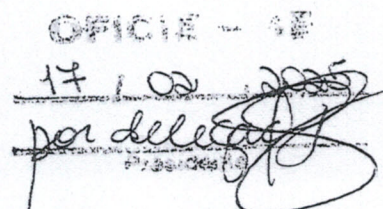 OFICIE - SE
17 / 02 / 2025
por delegação
Presidente